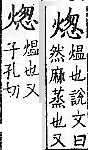 熜
熅也說文曰
然麻蒸也又
熜
熅也又
子孔切